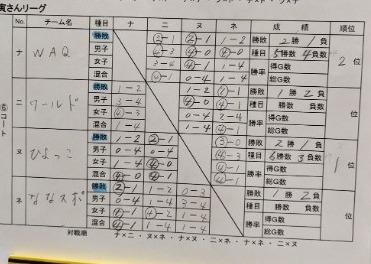 寅さんリーグ
No. チーム名 種目 ナ ニ ヌ ネ 成績 順位
⑥コート
ナ WAQ
勝敗 ③-1 ②-1 1-2 勝敗 2勝 1負 2位
男子 ④-3 ④-0 ④-0 種目 5勝数 4負数
女子 3-④ ④-1 1-4 勝率 得G数
混合 ④-1 0-4 1-④ 総G数
ニ ワールド
勝敗 1-2 1-2 ①-1 勝敗 1勝 2負 位
男子 3-4 ④-0 ④-1 種目 勝数 負数
女子 ④-3 0-4 2-4 勝率 得G数
混合 1-4 1-4 ④-1 総G数
ヌ ひよっこ
勝敗 1-2 ②-1 ③-0 勝敗 2勝 1負 1位
男子 0-4 0-4 ④-3 種目 6勝数 3負数
女子 1-4 ④-0 ④-1 勝率 得G数
混合 ④-0 ④-1 ④-1 総G数
ネ ななスポ
勝敗 ②-1 1-2 0-3 勝敗 1勝 2負 位
男子 0-4 1-4 3-4 種目 勝数 負数
女子 ④-1 ④-2 1-4 勝率 得G数
混合 ④-1 1-4 1-4 総G数
対戦順 ナ×ニ ・ ヌ×ネ ・ ナ×ヌ ・ ニ×ネ ・ ナ×ネ ・ ニ×ヌ